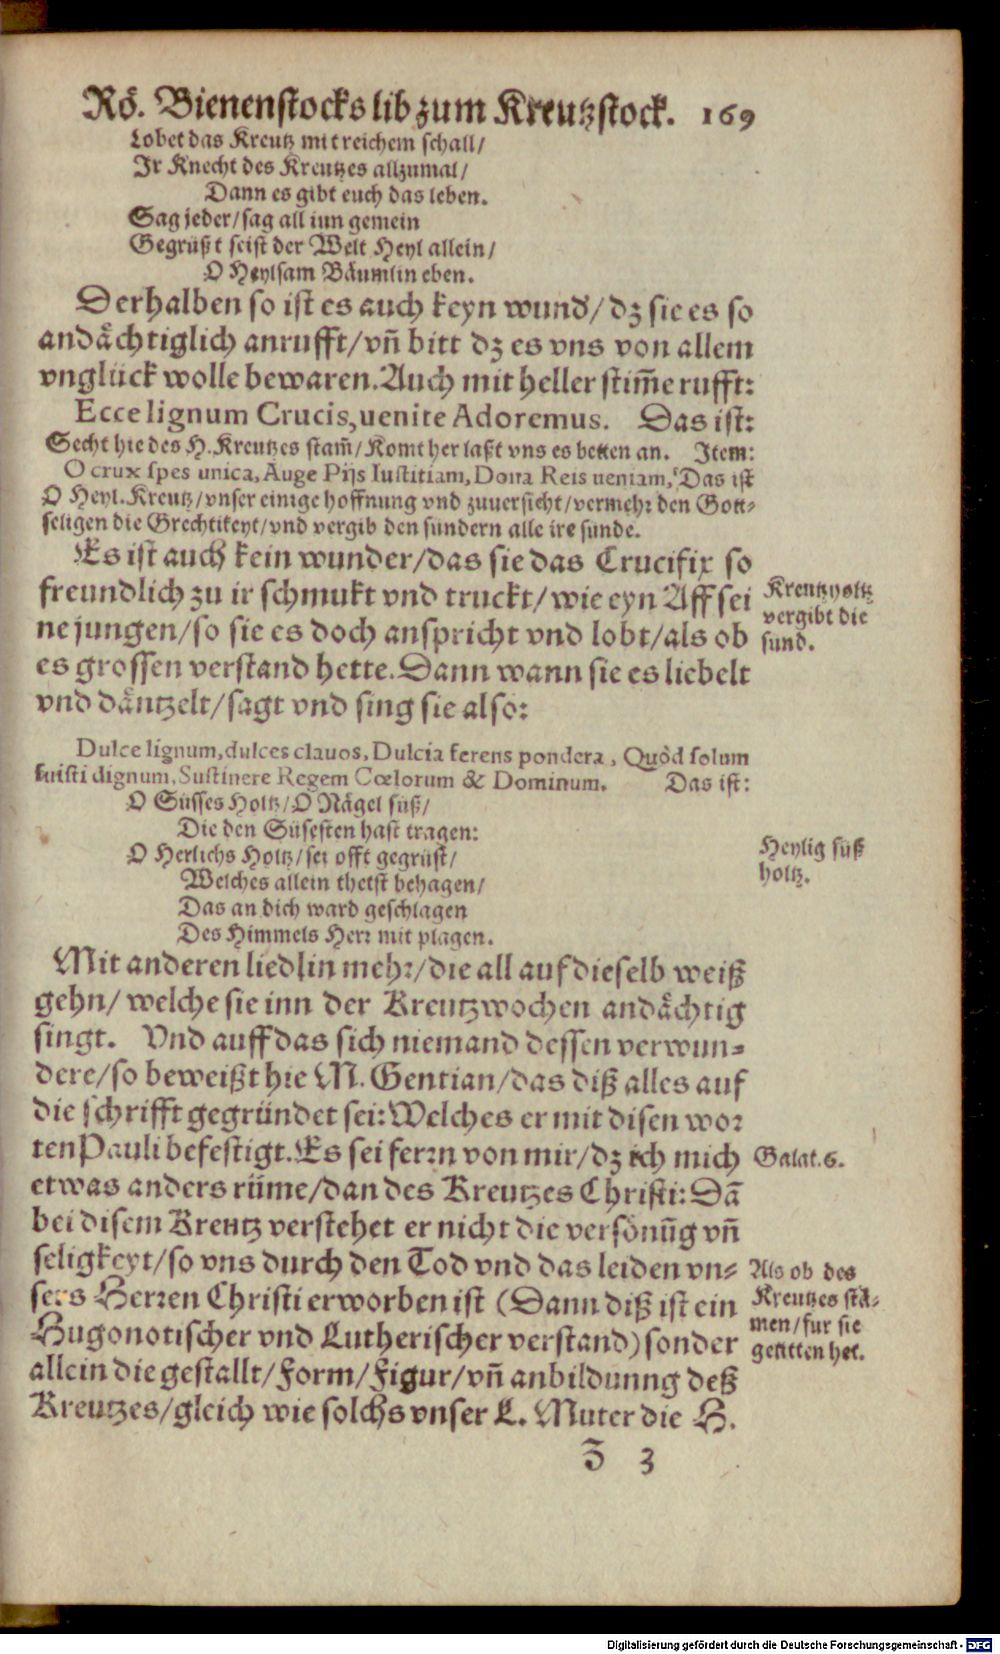 Rö. Bienenstocks lib zum Kreutzstock. 169
Lobet das Kreutz mit reichem schall/
Ir Knecht des Kreutzes allzumal/
Dann es gibt euch das leben.
Sag jeder/sag all inn gemein
Gegrüßt seist der Welt Heyl allein/
O Heylsam Bäumlin eben.
Derhalben so ist es auch keyn wund/dz sie es so
andächtiglich anrufft/vñ bitt dz es vns von allem
vnglück wolle bewaren. Auch mit heller stim̃e rufft:
Ecce lignum Crucis, uenite Adoremus. Das ist:
Secht hie des H. Kreutzes stam̃/Komt her laßt vns es betten an. Item:
O crux spes unica, Auge Pijs Iustitiam, Dona Reis ueniam, Das ist
O Heyl. Kreutz/vnser einige hoffnung vnd zuuersicht/vermehr den Gott-
seligen die Grechtikeyt/vnd vergib den sündern alle ire sünde.
Es ist auch kein wunder/das sie das Crucifix so
freundlich zu ir schmukt vnd truckt/wie eyn Aff sei
ne jungen/so sie es doch anspricht vnd lobt/als ob
es grossen verstand hette. Dann wann sie es liebelt
vnd däntzelt/sagt vnd sing sie also:
Kreutzholtz
vergibt die
sund.
Dulce lignum, dulces clauos, Dulcia ferens pondera, Quòd solum
fuisti dignum, Sustinere Regem Cœlorum & Dominum. Das ist:
O Süsses Holtz/O Nägel süß/
Die den Süsesten hast tragen:
O Herlichs Holtz/sei offt gegrüst/
Welches allein thetst behagen/
Das an dich ward geschlagen
Des Himmels Herr mit plagen.
Heylig süß
holtz.
Mit anderen liedlin mehr/die all auf dieselb weiß
gehn/welche sie inn der Kreutzwochen andächtig
singt. Vnd auff das sich niemand dessen verwun-
dere/so beweißt hie M. Gentian/das diß alles auf
die schrifft gegründet sei: Welches er mit disen wor
ten Pauli befestigt. Es sei ferrn von mir/dz ich mich
etwas anders rüme/dan des Kreutzes Christi: Dã
bei disem Kreutz verstehet er nicht die versönũg vñ
seligkeyt/so vns durch den Tod vnd das leiden vn-
sers Herren Christi erworben ist (Dann diß ist ein
Hugonotischer vnd Lutherischer verstand) sonder
allein die gestallt/Form/Figur/vñ anbildunng deß
Kreutzes/gleich wie solchs vnser L. Muter die H.
Galat. 6.
Als ob des
Kreutzes stã-
men/fur sie
gelitten het.
Z 3
Digitalisierung gefördert durch die Deutsche Forschungsgemeinschaft - DFG